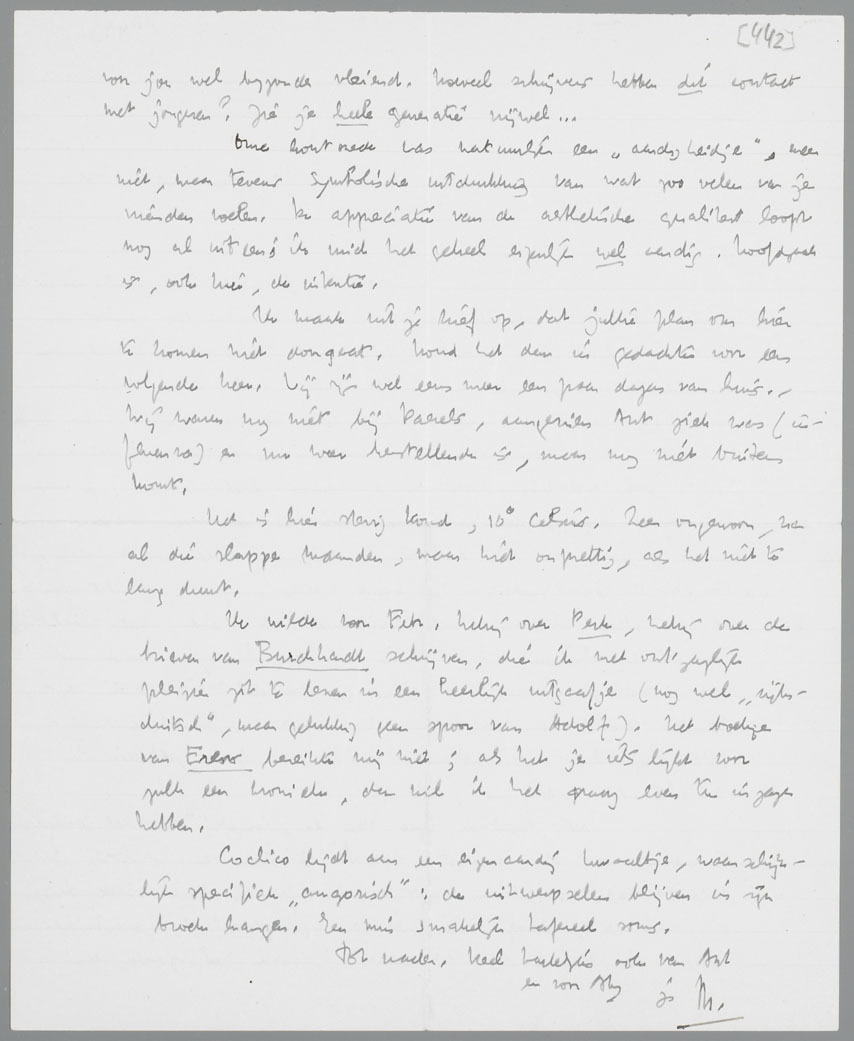 [442]
voor jou wel byzonder vleiend. Hoeveel schrijvers hebben dit contact
met jongeren? Zie je heele generatie nijvel...
Onze houtsnede was natuurlijk een „aardigheidje", meer
niet, maar tevens symbolische uitdrukking van wat zoo velen van je
vrienden voelen. De appreciatie van de aesthetische qualiteit loopt
nog al uiteen; ik vind het geheel eigenlijk wel aardig. Hoofdzaak
is, ook hier, de intentie.
Ik maak uit je brief op, dat jullie plan om hier
te komen niet doorgaat. Houd het dan in gedachte voor een
volgende keer. Wij zijn wel eens meer een paar dagen van huis. –
Wij waren nog niet bij , aangezien Ant ziek was (in-
fluenza) en nu weer herstellende is, maar nog niet buiten
komt.
Het is hier stevig koud, 10° Celsius. Zeer ongewoon, na
al die slappe maanden, maar niet onprettig, als het niet te
lang duurt.
Ik wilde voor Febr. hetzij over Perk, hetzij over de
brieven van Burckhardt schrijven, die ik met ontzaglijk
pleizier zit te lezen in een heerlijk uitgaafje (nog wel „rijks-
duitsch", maar gelukkig geen spoor van Adolf). Het boekje
van bereikte mij niet; als het je iets lijkt voor
zulk een kroniek, dan wil ik het graag even ter inzage
hebben.
Coclico lijdt aan een eigenaardig kwaaltje, waarschijn-
lijk specifiek „angorisch": de uitwerpselen blijven in zijn
broek hangen. Een min smakelijk tafereel soms.
Tot nader. Veel hartelijks ook van Ant
en voor Atie
je M.